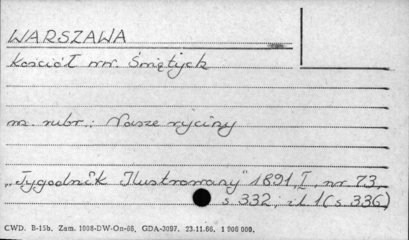 WARSZAWA
Kościół WW. Świętych
w rubr.: Nasze ryciny
„Tygodnik Ilustrowany" 1891, I, nr 73,
s 332, il. 1 (s 336)
CWD. B-15b, Zam. 1098-DW-On-66, GDA-3097. 23.11.66. 1 000 000.